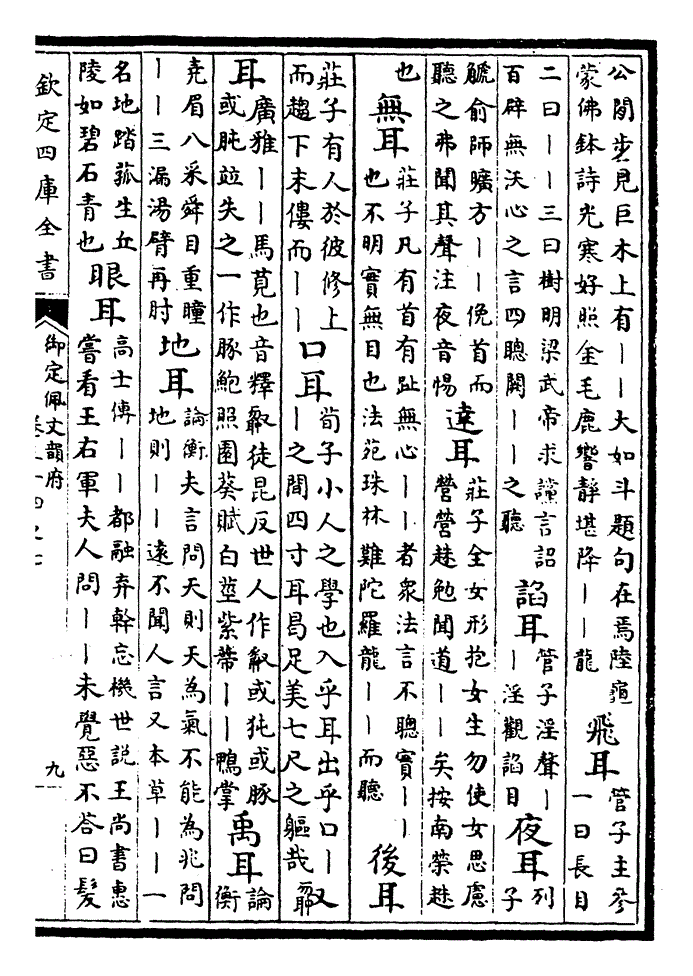 公閒步見巨木上有丨丨大如斗題句在焉陸龜
蒙佛鉢詩光寒好照金毛鹿響靜堪降丨丨龍
飛耳
管子主參
一曰長目
二曰丨丨三曰樹明梁武帝求讜言詔
百辟無沃心之言四聰闕丨丨之聽
諂耳
管子淫聲丨
丨淫觀諂目
夜耳
列
子
䚦俞師曠方丨丨俛首而
聽之弗聞其聲注夜音惕
達耳
莊子全女形抱女生勿使女思慮
營營趎勉聞道丨丨矣按南榮趎
也
無耳
莊子凡有首有趾無心丨丨者衆法言不聰實丨丨
也不明實無目也法苑珠林難陀羅龍丨丨而聽
後耳
莊子有人於彼修上
而趨下末僂而丨丨
口耳
荀子小人之學也入乎耳出乎口丨
丨之間四寸耳曷足美七尺之軀哉
耳
廣雅丨丨馬莧也音釋徒昆反世人作或㹠或豚
或肫竝失之一作豚鮑照園葵賦白莖紫蔕丨丨鴨掌
禹耳
論
衡
堯眉八采舜目重瞳
丨丨三漏湯臂再肘
地耳
論衡夫言問天則天為氣不能為兆問
地則丨丨遠不聞人言又本草丨丨一
名地踏菰生丘
陵如碧石青也
眼耳
高士傳丨丨都融弃幹忘機世說王尚書惠
嘗看王右軍夫人問丨丨未覺惡不答曰髮
欽定四庫全書
御定佩文韻府
九